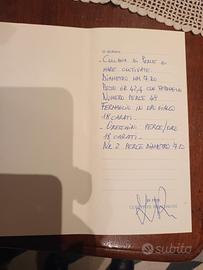 - COLLANA DI PERLE DI
MARE COLTIVATE
DIAMETRO MM 7.20
PESO GR 42,4 CON FERMAGLIO
NUMERO PERLE 49
FERMAGLIO IN ORO GIALLO
18 CARATI
- ORECCHINI PERLE/ORO
18 CARATI -
N.R 2 PERLE DIAMETRO 7.20
IN FEDE
subito